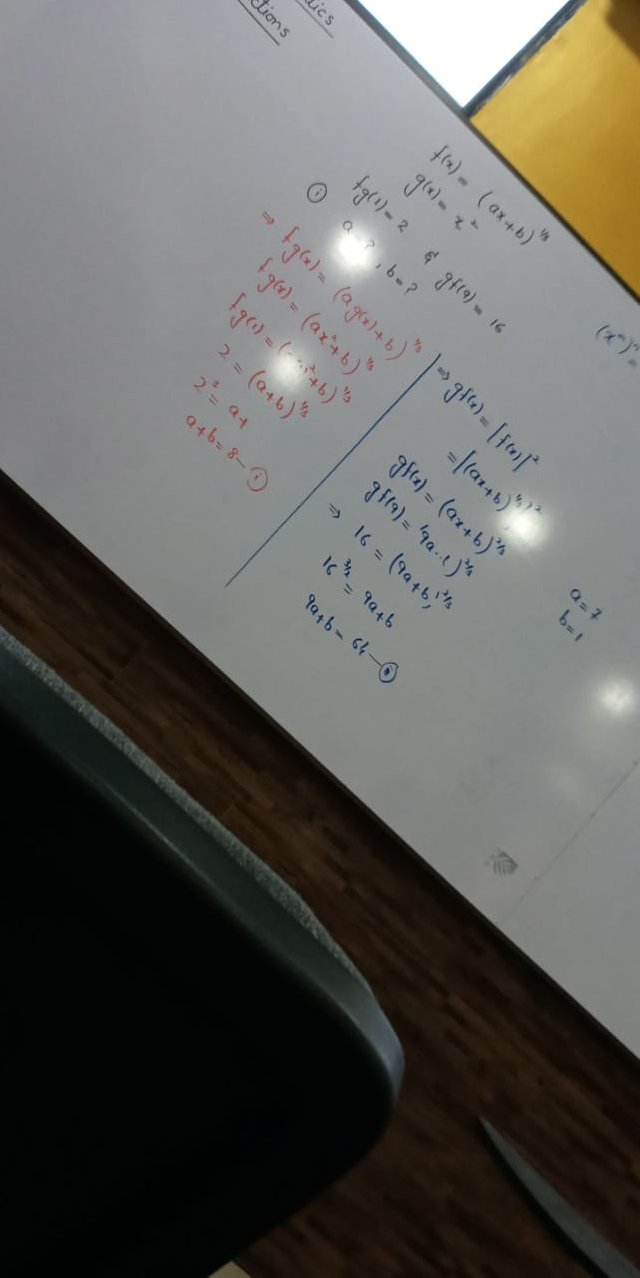 f(x) = (ax+b)^⅓
g(x) = x²
① fg(1) = 2 & gf(9) = 16
a = ?, b = ?
⇒ fg(x) = (ag(x)+b)^⅓
fg(x) = (ax²+b)^⅓
fg(1) = ²+b)^⅓
2 = (a+b)^⅓
2³ = a+
a+b = 8 — ①
⇒ gf(x) = [f(x)]²
= [(ax+b)^⅓]²
gf(x) = (ax+b)^⅔
gf(9) = (9a
⇒ 16 = (9a+b)^⅔
16^3/2 = 9a+b
9a+b = 64 —
a = 7
b = 1
(xᵐ)ⁿ =